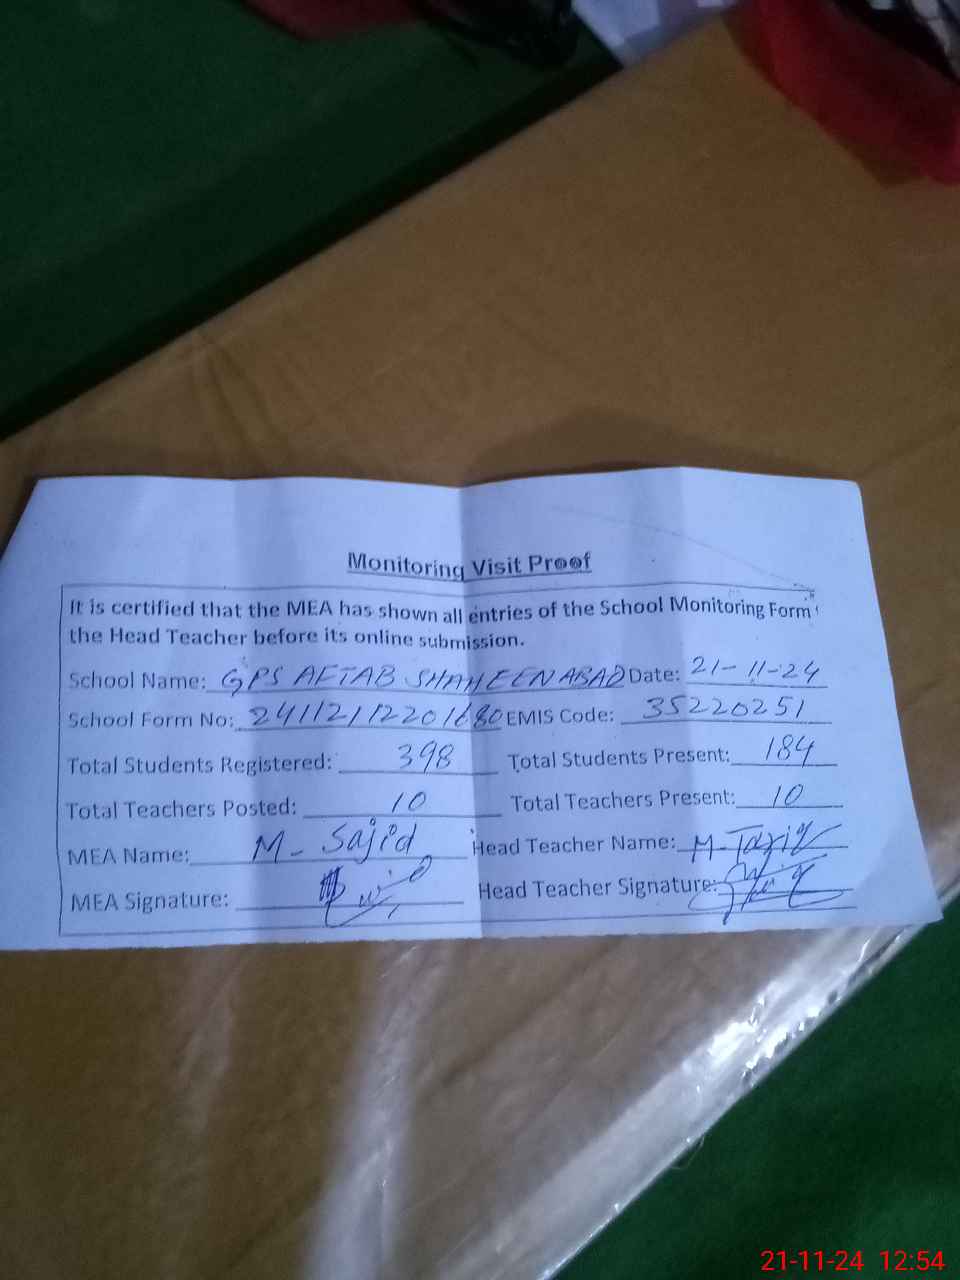 Monitoring Visit Proof
It is certified that the MEA has shown all entries of the School Monitoring Form
the Head Teacher before its online submission.
School Name: GPS AFTAB SHAHEENABAD Date: 21-11-24
School Form No: 241121122201680 EMIS Code: 35220251
Total Students Registered: 398 Total Students Present: 184
Total Teachers Posted: 10 Total Teachers Present: 10
MEA Name: M- Sajid Head Teacher Name: M-Tariq
MEA Signature: Head Teacher Signature:
21-11-24 12:54